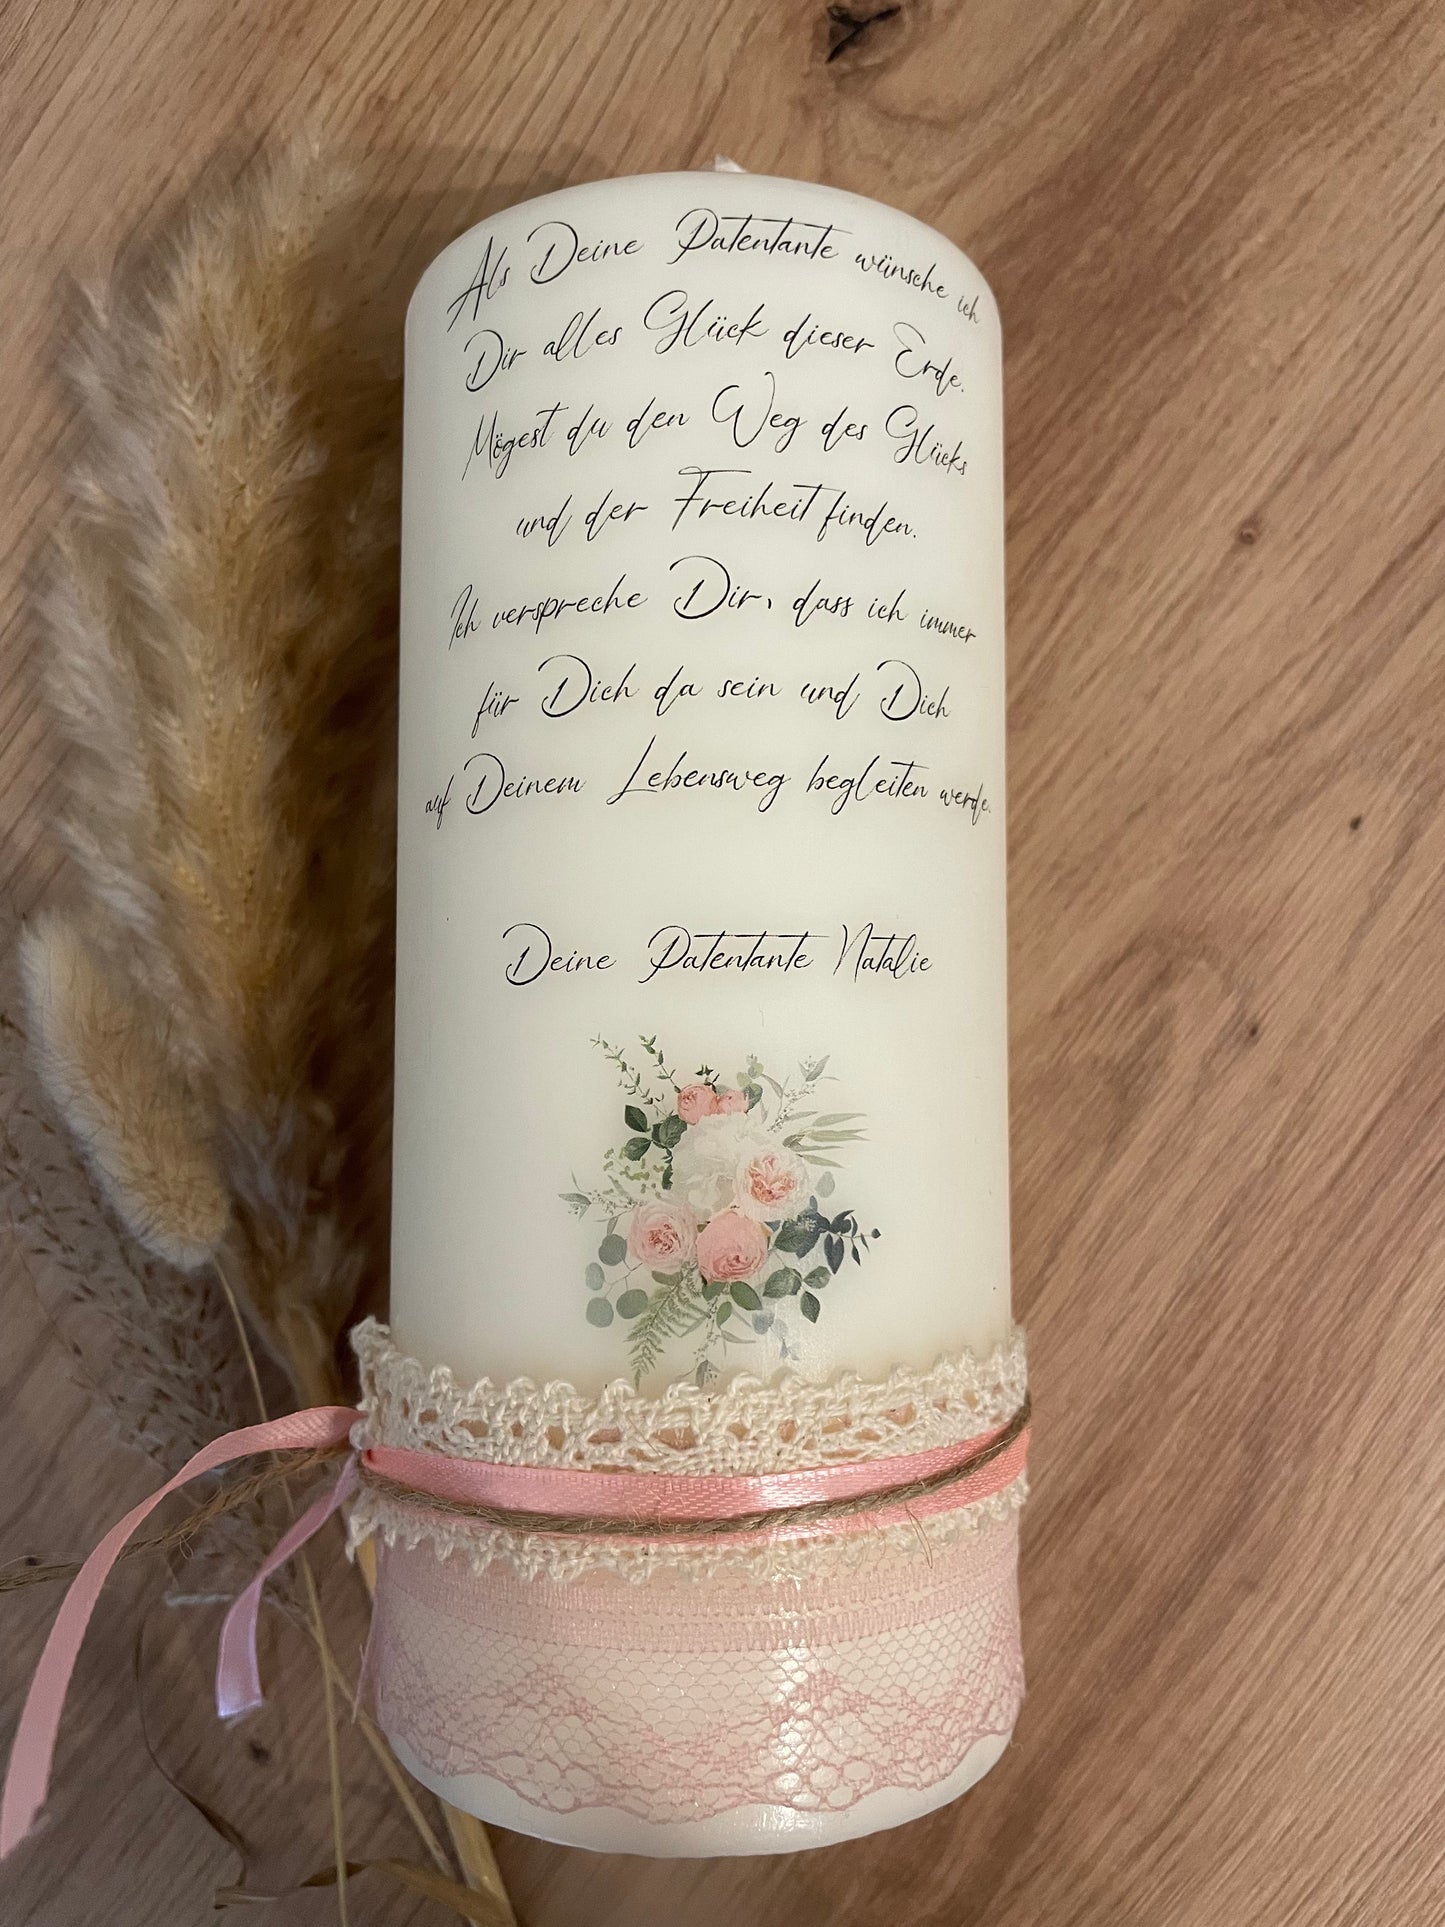 Als Deine Patentante wünsche ich
Dir alles Glück dieser Erde.
Mögest du den Weg des Glücks
und der Freiheit finden.
Ich verspreche Dir, dass ich immer
für Dich da sein und Dich
auf Deinem Lebensweg begleiten werde.
Deine Patentante Natalie